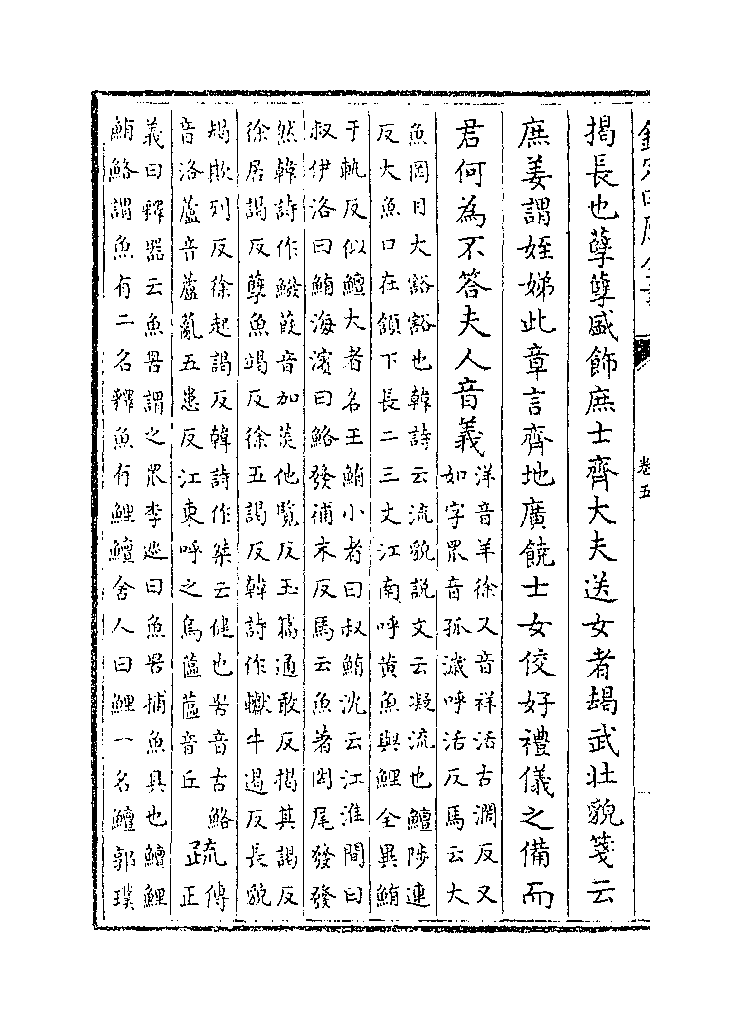 欽定四庫全書
卷五
揭長也孽孽盛飾庶士齊大夫送女者朅武壯貌箋云
庶姜謂姪娣此章言齊地廣饒士女佼好禮儀之備而
君何為不答夫人音義
洋音羊徐又音祥活古濶反又
如字罛音孤濊呼活反馬云大
魚罔目大豁豁也韓詩云流貌說文云凝流也鱣陟連
反大魚口在頷下長二三丈江南呼黄魚與鯉全異鮪
于軌反似鱣大者名王鮪小者曰叔鮪沈云江淮間曰
叔伊洛曰鮪海濱曰鮥發補末反馬云魚著罔尾發發
然韓詩作鱍葭音加菼他覽反玉篇通敢反揭其謁反
徐居謁反孽魚竭反徐五謁反韓詩作巘牛遏反長貌
朅欺列反徐起謁反韓詩作桀云健也罟音古鮥
音洛蘆音蘆薍五患反江東呼之烏蓲蓲音丘
疏
傳
正
義曰釋器云魚罟謂之罛李巡曰魚罟捕魚具也鱣鯉
鮪鮥謂魚有二名釋魚有鯉鱣舍人曰鯉一名鱣郭璞